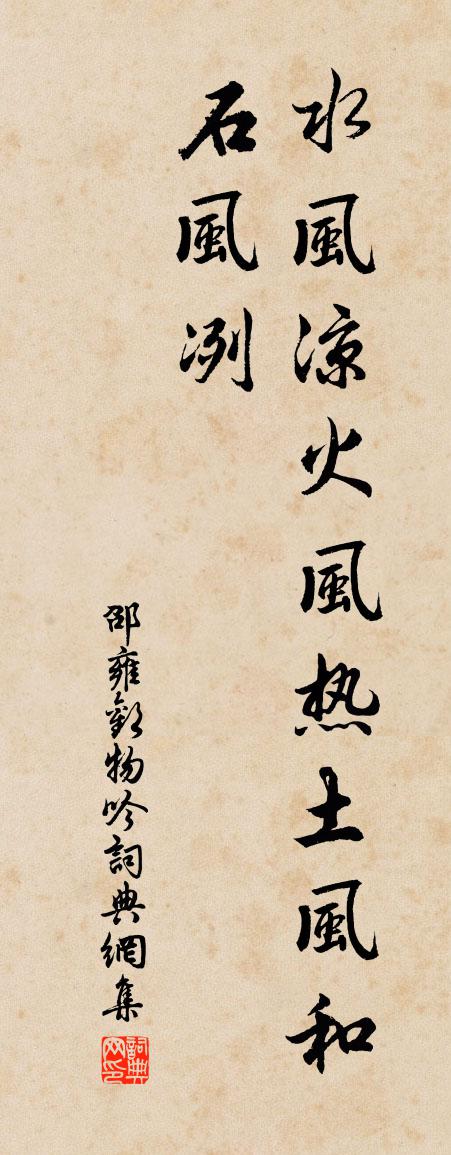 水風凉火風热土風和
石風冽
邵雍觀物吟詞典網集
詞典网印